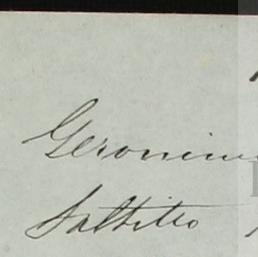 Geronimo
Saltillo